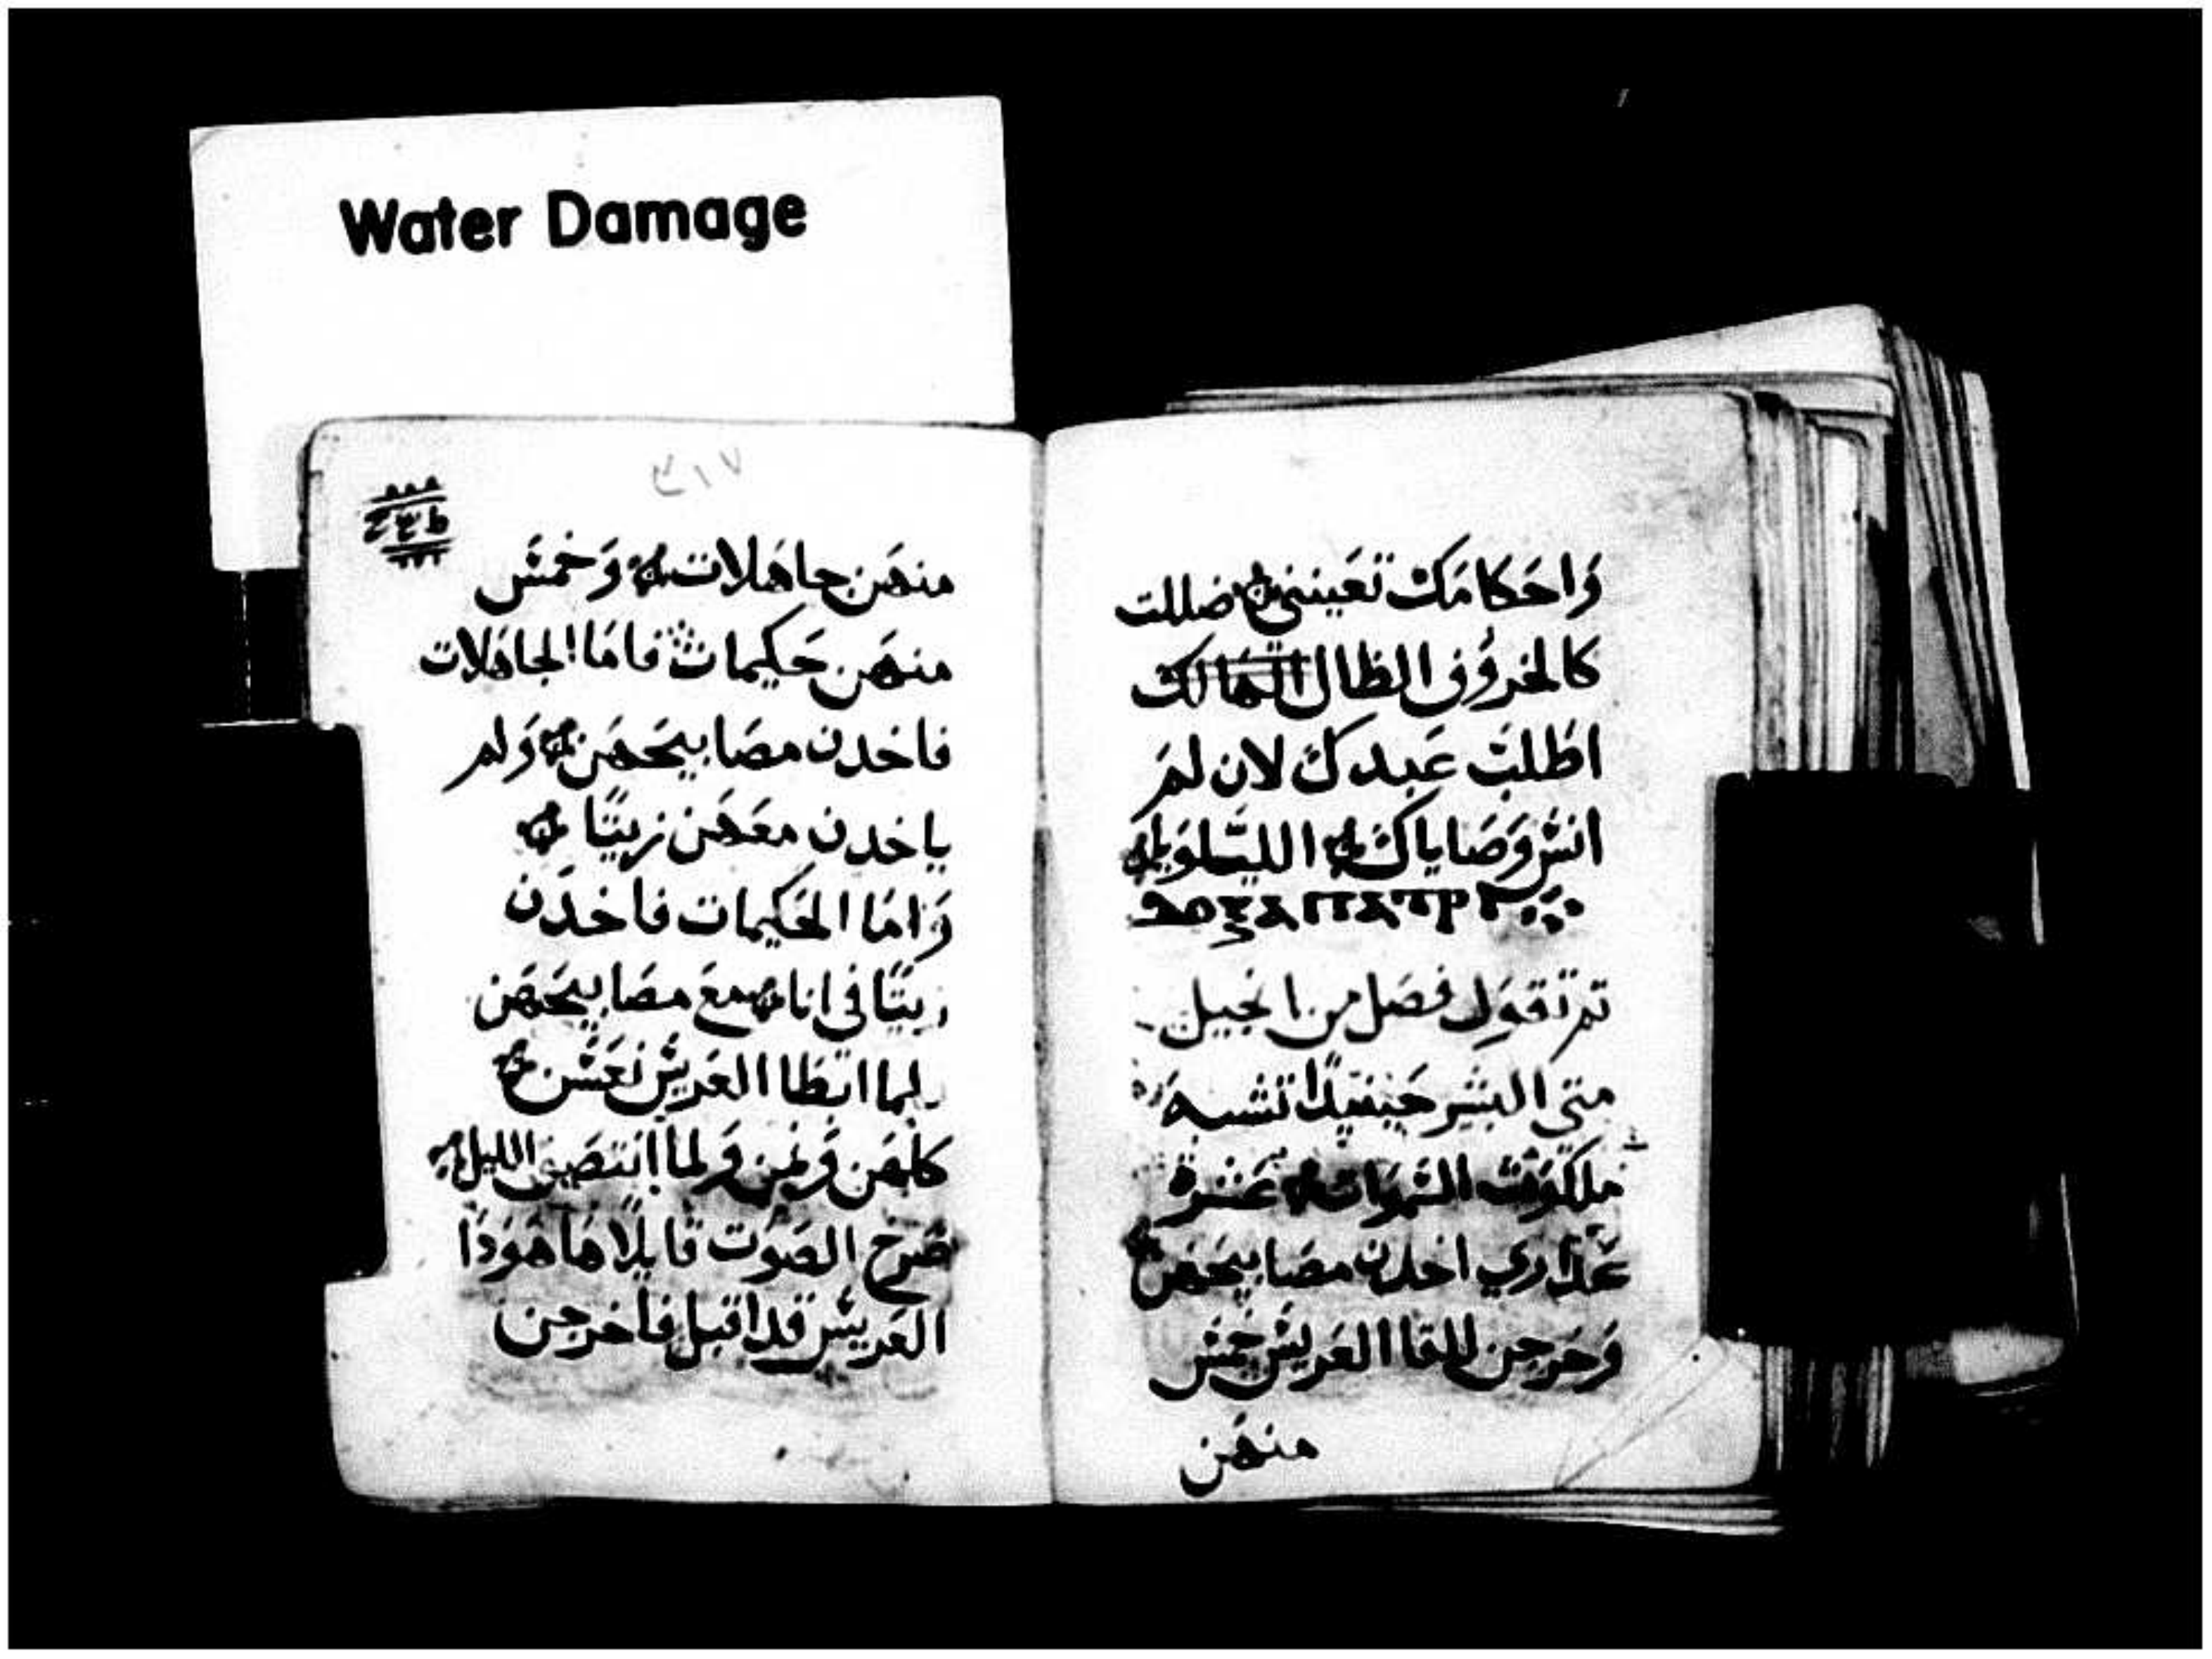 Water Damage
وَاحَكامَك تعَينني ضللت
كالخروُف الظال الهَالك
اطلبَ عَبدك لان لمَ
انسَ وَصَاياك الليَلويا
ⲇⲟⲝⲁ ⲡⲁⲧⲣⲓ
تم تقوَل فصَل من انجيل
متي البشير حَينيدًا تشبه
ملكوَت السَموَات عَشرة
عَداري اخدن مصَابيحَهَن
وَخرجن للقا العَريسَ خمسَ
منهَن
٣١٧
منهَن جاهَلات وَخمسَ
منهَن حَكيمات فامَا الجاهَلات
فاخدن مصَابيحَهَن وَلم
ياخدن معَهَن زيتًا
وَامَا الحَكيمات فاخدَن
زيتًا في انا مع مصَابيحَهَن
ولما ابطا العَريسَ نعَسَن
كلهَن وَنمن وَلما انتصَف الليل
صَرخ الصَوَت قايلًا هَا هَوَدا
العَريسَ قد اقبل فاخرجن